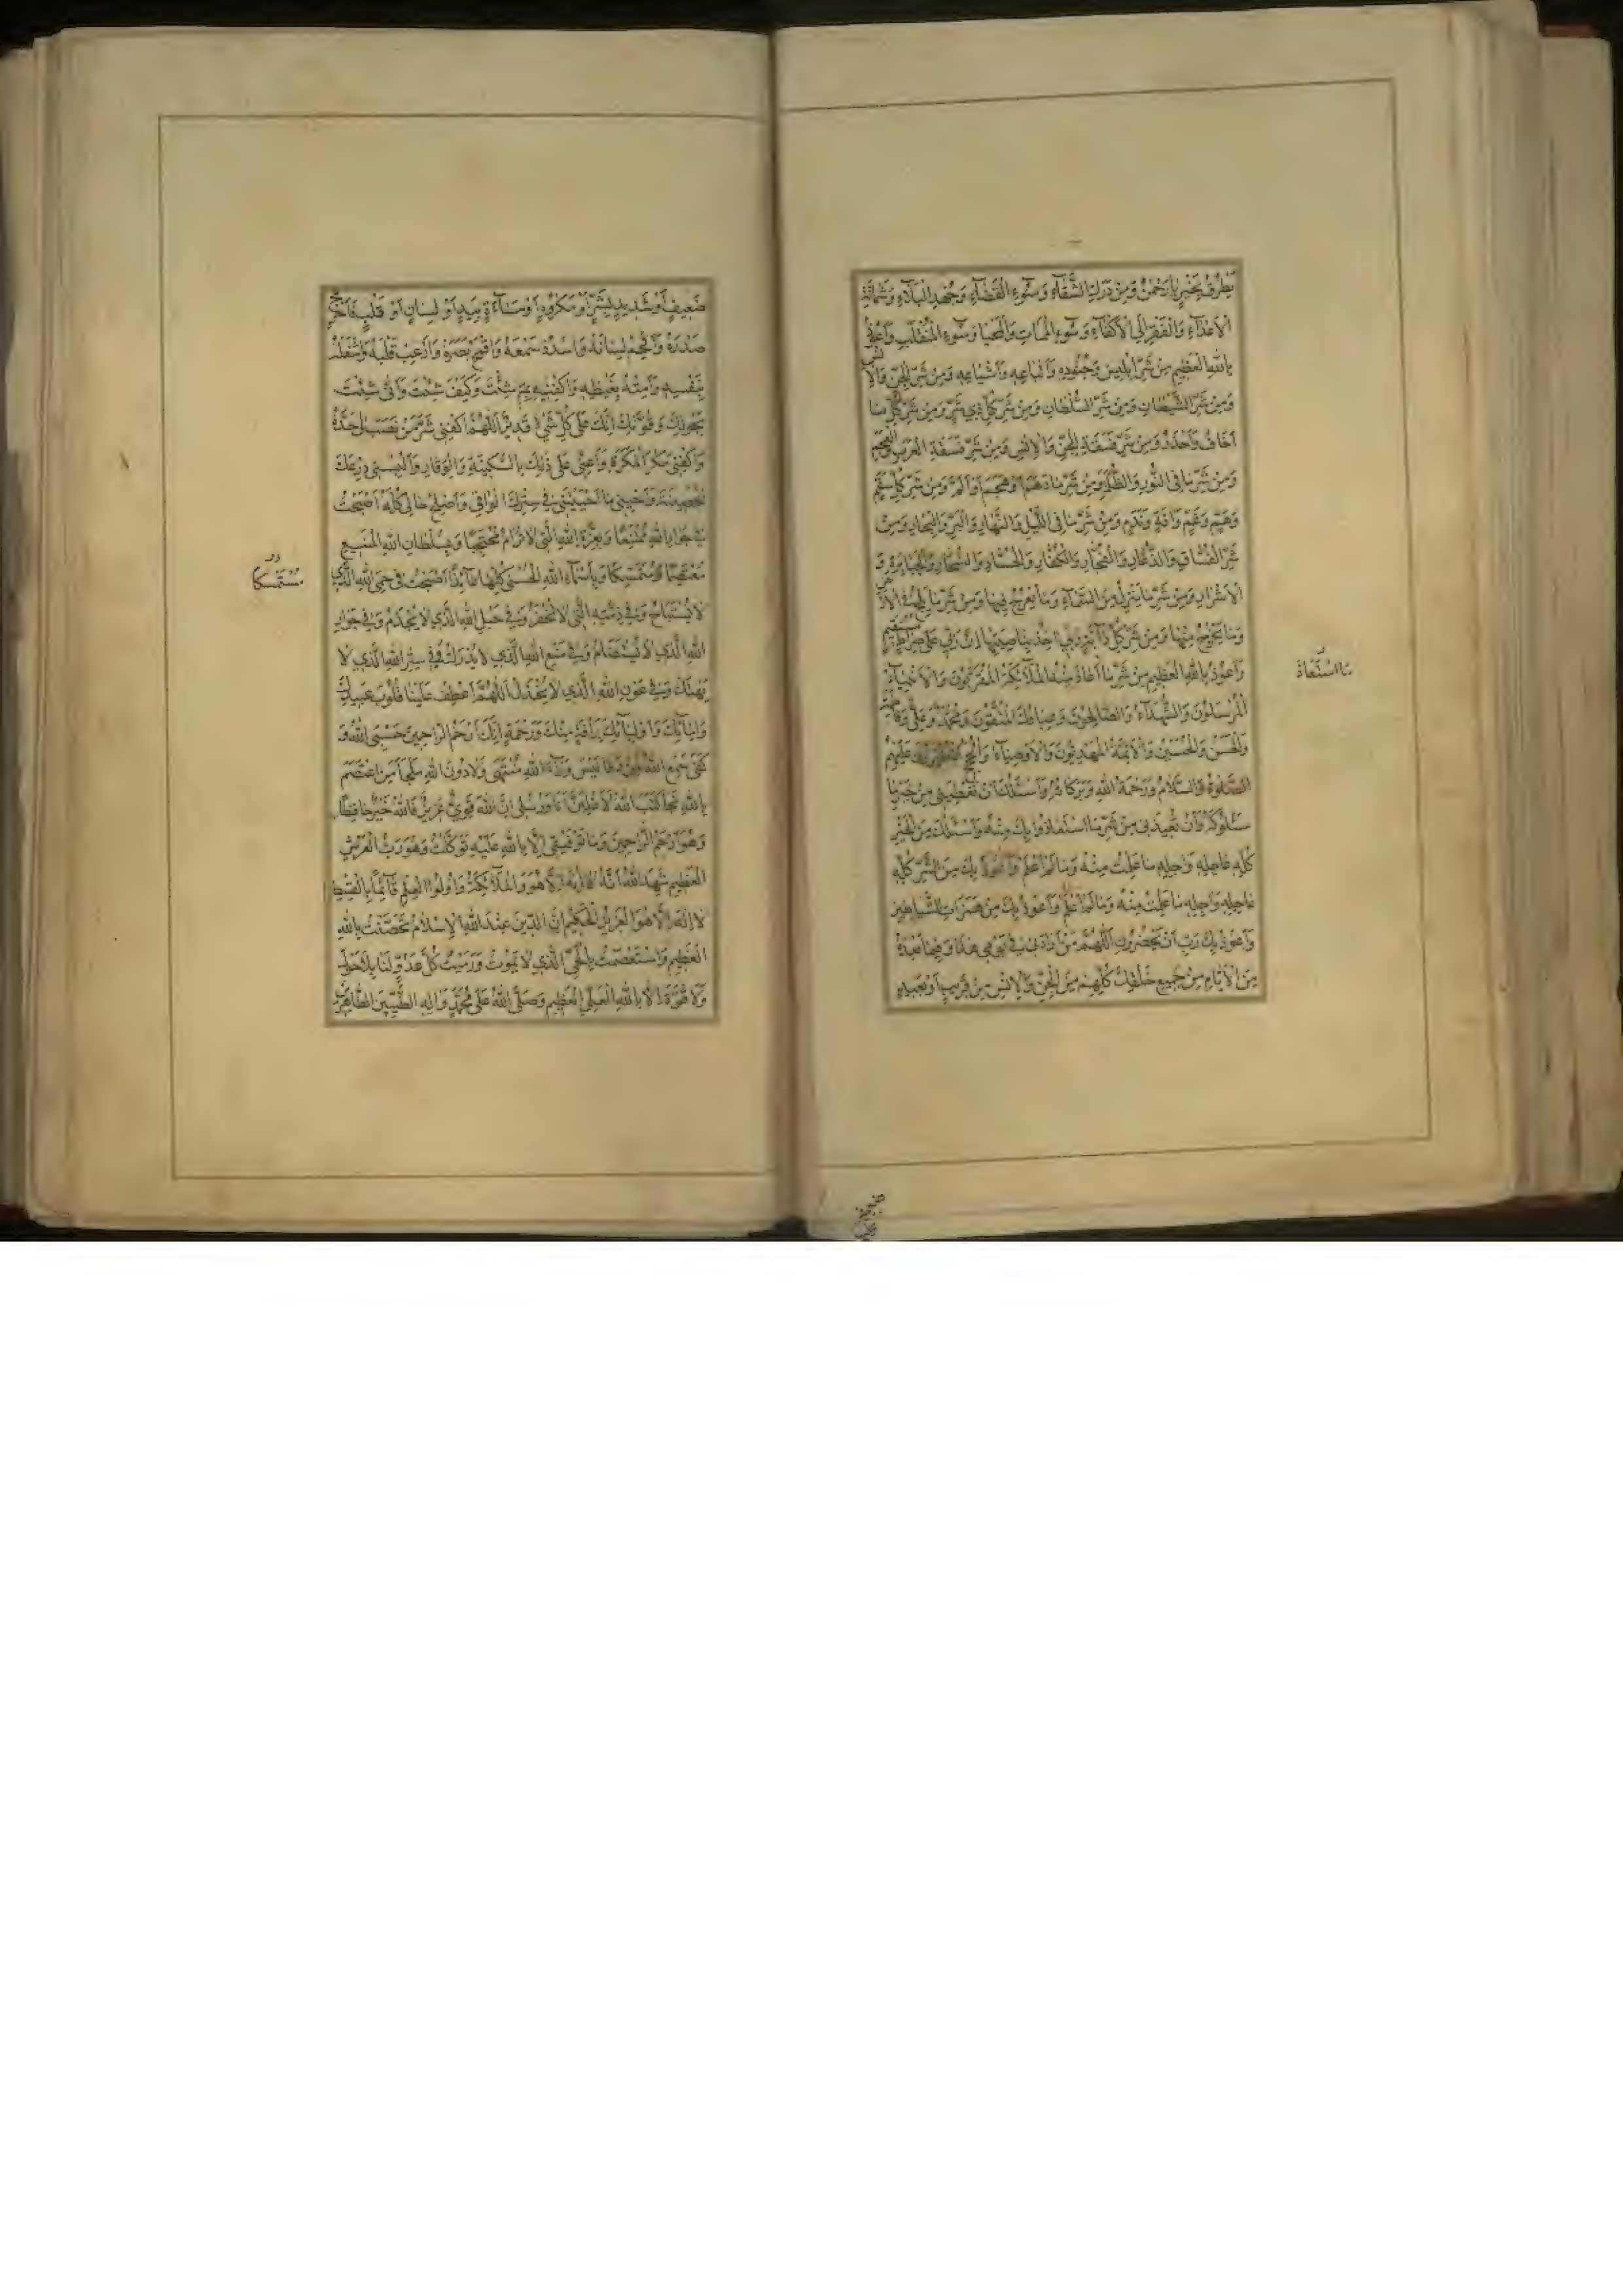 يَطْرُقُ بِخَيْرٍ يا رَحْمٰنُ وَمِنْ دَرَكِ الشَّقآءِ وَسُوءِ الْقَضآءِ وَجُهْدِ الْبَلآءِ وَشَماتَةِ
الْاَعْدآءِ وَالْفَقْرِ اِلَى الْاَكْفآءِ وَسُوءِ الْمَماتِ وَالْمَحْيا وَسُوءِ الْمُنْقَلَبِ وَاَعُوذُ
بِاللهِ الْعَظيمِ مِنْ شَرِّ اِبْليسَ وَجُنُودِهِ وَاَتْباعِهِ وَاَشْياعِهِ وَمِنْ شَرِّ الْجِنِّ وَالْاِنْسِ
وَمِنْ شَرِّ الشَّيْطانِ وَمِنْ شَرِّ السُّلْطانِ وَمِنْ شَرِّ كُلِّ ذي شَرٍّ وَمِنْ شَرِّ كُلِّ ما
اَخافُ وَاَحْذَرُ وَمِنْ شَرِّ فَسَقَةِ الْجِنِّ وَالْاِنْسِ وَمِنْ شَرِّ فَسَقَةِ الْعَرَبِ وَالْعَجَمِ
وَمِنْ شَرِّ ما فِى النُّورِ وَالظُّلَمِ وَمِنْ شَرِّ ما دَهَمَ اَوْ هَجَمَ اَوْ اَلَمَّ وَمِنْ شَرِّ كُلِّ سُقْمٍ
وَهَمٍّ وَغَمٍّ وَآفَةٍ وَنَدَمٍ وَمِنْ شَرِّ ما فِى اللَّيْلِ وَالنَّهارِ وَالْبَرِّ وَالْبِحارِ وَمِنْ
شَرِّ الْفُسّاقِ وَالدُّعّارِ وَالْفُجّارِ وَالْكُفّارِ وَالْحُسّادِ وَالسُّحّارِ وَالْجَبابِرَةِ وَ
الْاَشْرارِ وَمِنْ شَرِّ ما يَنْزِلُ مِنَ السَّمآءِ وَما يَعْرُجُ فيها وَمِنْ شَرِّ ما يَلِجُ فِى الْاَرْضِ
وَما يَخْرُجُ مِنْها وَمِنْ شَرِّ كُلِّ دآبَّةٍ رَبّي آخِذٌ بِناصِيَتِها اِنَّ رَبّي عَلى صِراطٍ مُسْتَقيمٍ
وَاَعُوذُ بِاللهِ الْعَظيمِ مِنْ شَرِّ ما اَعاذَ مِنْهُ الْمَلآئِكَةُ الْمُقَرَّبُونَ وَالْاَنْبِيآءُ
الْمُرْسَلُونَ وَالشُّهَدآءُ وَالصّالِحُونَ وَعِبادُكَ الْمُتَّقُونَ وَمُحَمَّدٌ وَعَلِيٌّ وَفاطِمَةُ
وَالْحَسَنُ وَالْحُسَيْنُ وَالْاَئِمَّةُ الْمَهْدِيُّونَ وَالْاَوْصِيآءُ وَالْحُجَجُ عَلَيْهِمُ
الصَّلوةُ وَالسَّلامُ وَرَحْمَةُ اللهِ وَبَرَكاتُهُ وَاَسْئَلُكَ اَنْ تُعْطِيَنى مِنْ خَيْرِ ما
سَئَلُوكَهُ وَاَنْ تُعيذَنى مِنْ شَرِّ ما اسْتَعاذُوا بِكَ مِنْهُ وَاَسْئَلُكَ مِنَ الْخَيْرِ
كُلِّهِ عاجِلِهِ وَاجِلِهِ ما عَلِمْتُ مِنْهُ وَما لَمْ اَعْلَمْ وَاَعُوذُ بِكَ مِنَ الشَّرِّ كُلِّهِ
عاجِلِهِ وَاجِلِهِ ما عَلِمْتُ مِنْهُ وَما لَمْ اَعْلَمْ وَاَعُوذُ بِكَ مِنْ هَمَزاتِ الشَّياطينِ
وَاَعُوذُ بِكَ رَبِّ اَنْ يَحْضُرُونِ اَللّهُمَّ مَنْ اَرادَنى فى يَوْمى هذا وَفيما بَعْدَهُ
مِنَ الْاَيّامِ مِنْ جَميعِ خَلْقِكَ كُلِّهِمْ مِنَ الْجِنِّ وَالْاِنْسِ مِنْ قَريبٍ اَوْ بَعيدٍ
مَا اسْتَعاذَ
ضَعيفٍ اَوْ شَديدٍ بِشَرٍّ اَوْ مَكْرُوهٍ اَوْ مَسآءَةٍ بِيَدٍ اَوْ لِسانٍ اَوْ قَلْبٍ فَاَحْرِجْ
صَدْرَهُ وَاَلْجِمْ لِسانَهُ وَاسْدُدْ سَمْعَهُ وَاقْمَحْ بَصَرَهُ وَاَرْعِبْ قَلْبَهُ وَاشْغَلْهُ
بِنَفْسِهِ وَاَمِتْهُ بِغَيْظِهِ وَاكْفِنيهِ بِمَ شِئْتَ وَكَيْفَ شِئْتَ وَاَنّى شِئْتَ
بِحَوْلِكَ وَقُوَّتِكَ اِنَّكَ عَلى كُلِّ شَىْءٍ قَديرٌ اَللّهُمَّ اكْفِنى شَرَّ مَنْ نَصَبَ لى حَدَّهُ
وَاكْفِنى مَكْرَ الْمَكَرَةِ وَاَعِنّى عَلى ذلِكَ بِالسَّكينَةِ وَالْوَقارِ وَاَلْبِسْنى دِرْعَكَ
الْحَصينَةَ وَاَحْيِنى ما اَحْيَيْتَنى فى سِتْرِكَ الْواقى وَاَصْلِحْ حالى كُلَّهُ اَصْبَحْتُ
فى جِوارِ اللهِ مُمْتَنِعًا وَبِعِزَّةِ اللهِ الَّتى لا تُرامُ مُحْتَجِبًا وَبِسُلْطانِ اللهِ الْمَنيعِ
مُعْتَصِمًا مُتَمَسِّكًا وَبِاَسْمآءِ اللهِ الْحُسْنى كُلِّها عآئِذًا اَصْبَحْتُ فى حِمَى اللهِ الَّذي
لا يُسْتَباحُ وَفى ذِمَّتِهِ الَّتى لا تُخْفَرُ وَفى حَبْلِ اللهِ الَّذي لا يُجْذَمُ وَفى جِوارِ
اللهِ الَّذي لا يُسْتَضامُ وَفى مَنْعِ اللهِ الَّذي لا يُدْرَكُ وَفى سِتْرِ اللهِ الَّذي لا
يُهْتَكُ وَفى عَوْنِ اللهِ الَّذي لا يُخْذَلُ اَللّهُمَّ اعْطِفْ عَلَيْنا قُلُوبَ عَبيدِكَ
وَاِمآئِكَ وَاَوْلِيآئِكَ بِرَأْفَةٍ مِنْكَ وَرَحْمَةٍ اِنَّكَ اَرْحَمُ الرّاحِمينَ حَسْبِىَ اللهُ وَ
كَفى سَمِعَ اللهُ لِمَنْ دَعا لَيْسَ وَرآءَ اللهِ مُنْتَهى وَلا دُونَ اللهِ مَلْجَأ مَنِ اعْتَصَمَ
بِاللهِ نَجا كَتَبَ اللهُ لَاَغْلِبَنَّ اَنَا وَرُسُلى اِنَّ اللهَ قَوِيٌّ عَزيزٌ فَاللهُ خَيْرٌ حافِظًا
وَهُوَ اَرْحَمُ الرّاحِمينَ وَما تَوْفيقى اِلّا بِاللهِ عَلَيْهِ تَوَكَّلْتُ وَهُوَ رَبُّ الْعَرْشِ
الْعَظيمِ شَهِدَ اللهُ اَنَّهُ لا اِلهَ اِلّا هُوَ وَالْمَلآئِكَةُ وَاُولُوا الْعِلْمِ قآئِمًا بِالْقِسْطِ
لا اِلهَ اِلّا هُوَ الْعَزيزُ الْحَكيمُ اِنَّ الدّينَ عِنْدَ اللهِ الْاِسْلامُ تَحَصَّنْتُ بِاللهِ
الْعَظيمِ وَاسْتَعْصَمْتُ بِالْحَيِّ الَّذي لا يَمُوتُ وَرَمَيْتُ كُلَّ عَدُوٍّ لَنا بِلا حَوْلَ
وَلا قُوَّةَ اِلّا بِاللهِ الْعَلِيِّ الْعَظيمِ وَصَلَّى اللهُ عَلى مُحَمَّدٍ وَالِهِ الطَّيِّبينَ الطّاهِرينَ
مُسْتَمْسِكًا